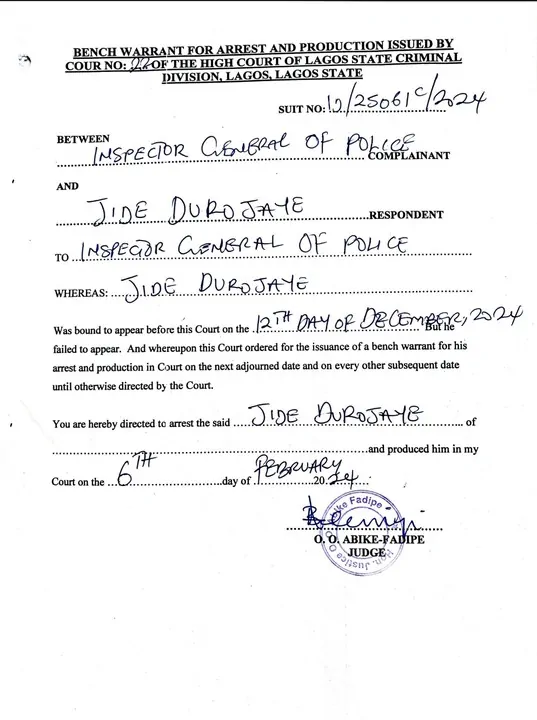 BENCH WARRANT FOR ARREST AND PRODUCTION ISSUED BY
COUR NO: 22 OF THE HIGH COURT OF LAGOS STATE CRIMINAL
DIVISION, LAGOS, LAGOS STATE
SUIT NO: ID/25061C/2024
BETWEEN
INSPECTOR GENERAL OF POLICE COMPLAINANT
AND
JIDE DUROJAYE RESPONDENT
TO INSPECTOR GENERAL OF POLICE
WHEREAS: JIDE DUROJAYE
Was bound to appear before this Court on the 12TH DAY OF DECEMBER, 2024 But he
failed to appear. And whereupon this Court ordered for the issuance of a bench warrant for his
arrest and production in Court on the next adjourned date and on every other subsequent date
until otherwise directed by the Court.
You are hereby directed to arrest the said JIDE DUROJAYE of
and produced him in my
Court on the 6TH day of FEBRUARY 2024
Hon. Justice O. O. Abike Fadipe
O. O. ABIKE-FADIPE
JUDGE